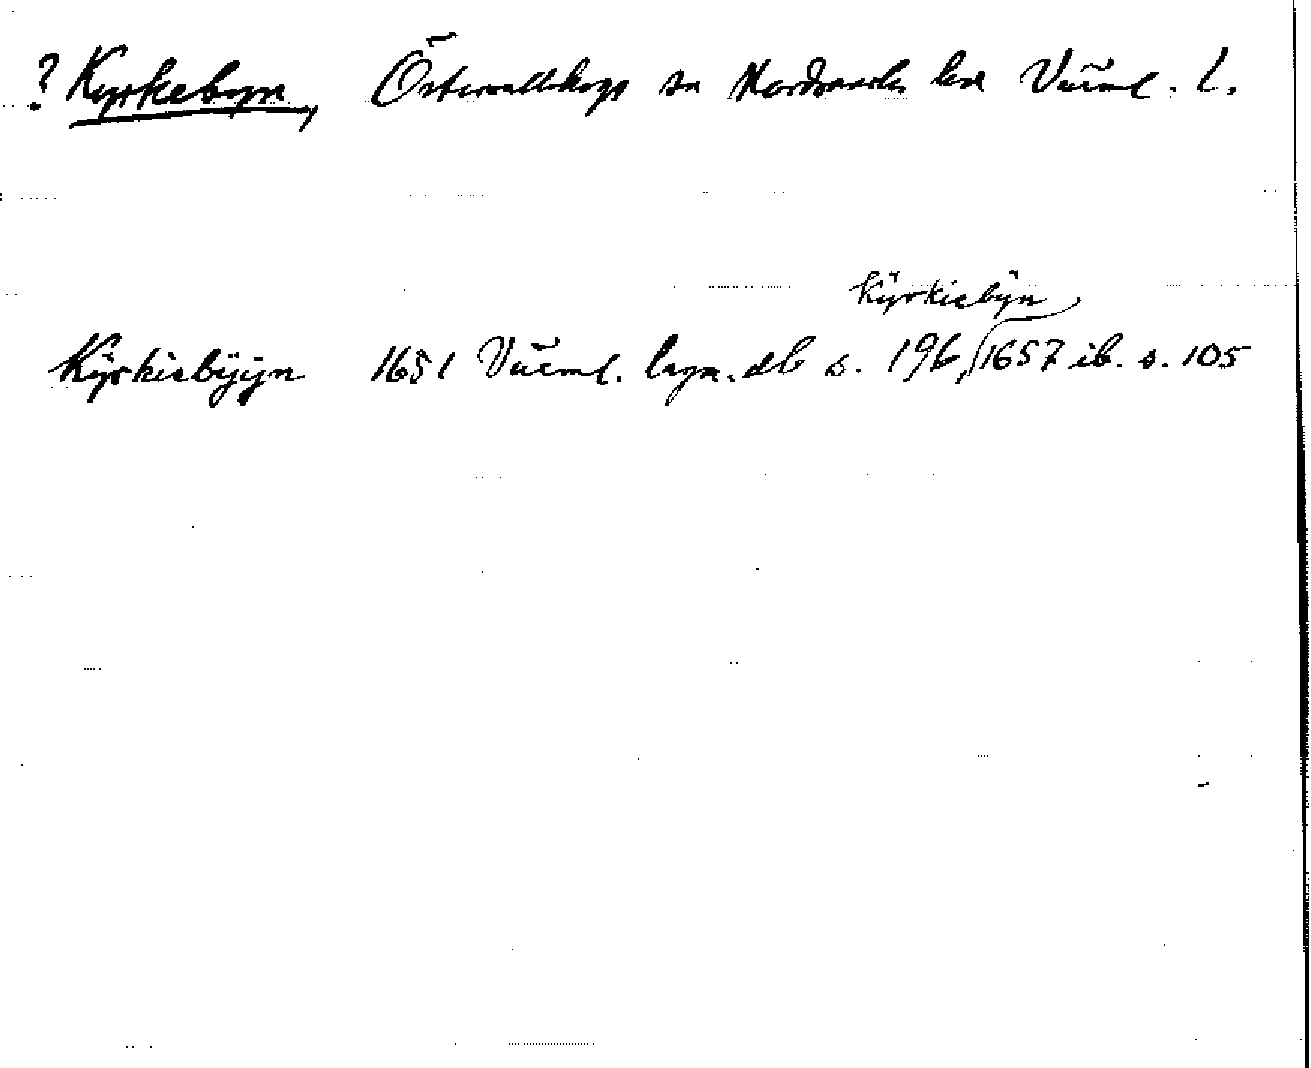 ? Kyrkebyn, Östervallskogs sn Nordmarks hd Värml. l.
Kÿrkiebÿn
Kÿrkiebÿyn 1651 Värml. lagm.db s. 196, 1657 ib. s. 105